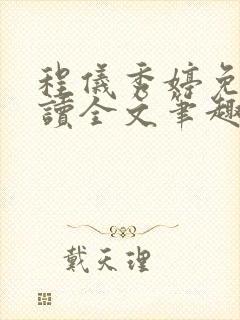 程儀秀婷免
讀全文筆趣
戴天理